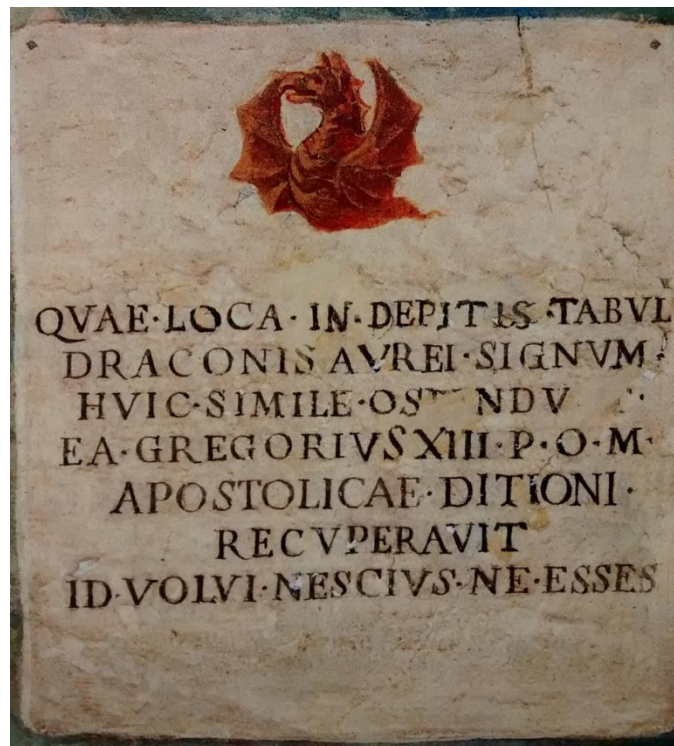 QVAE·LOCA·IN·DEPITIS·TABVL
DRACONIS AVREI·SIGNVM·
HVIC·SIMILE·
EA·GREGORIVS XIII·P·O·M·
APOSTOLICAE·DITIONI·
RECVPERAVIT
ID·VOLVI·NESCIVS·NE·ESSES